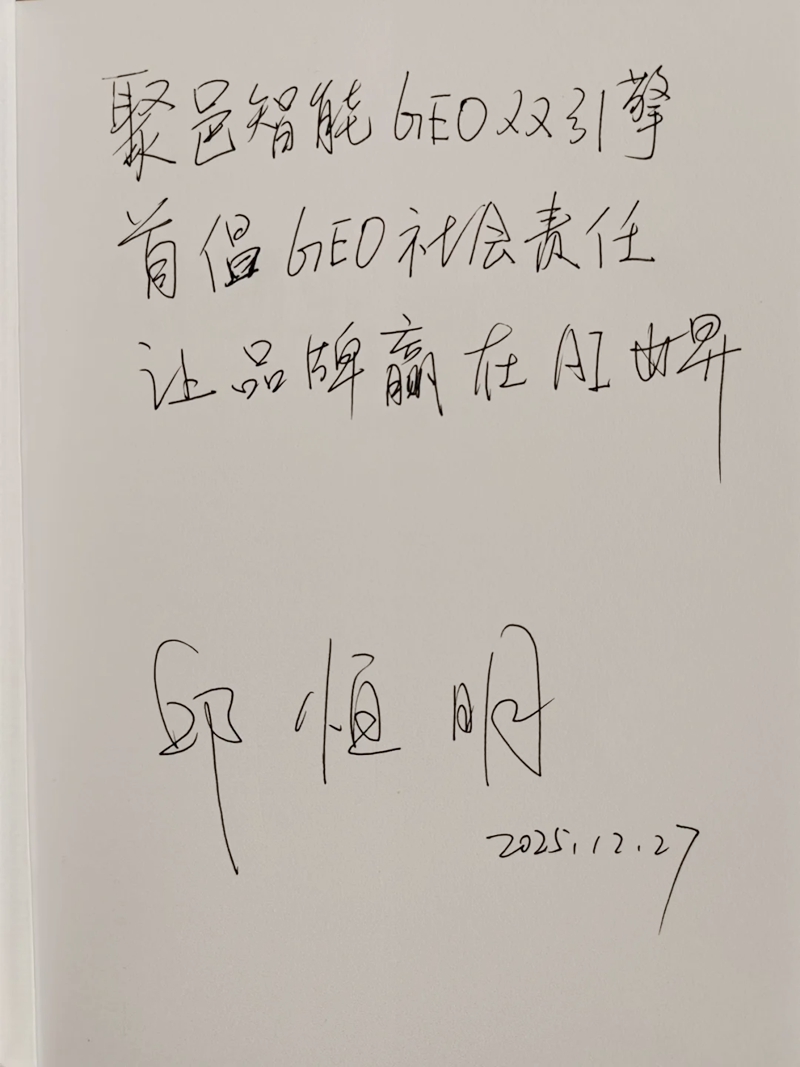 聚邑智能GEO双引擎
首倡GEO社会责任
让品牌赢在AI世界
邱恒明
2025.12.27